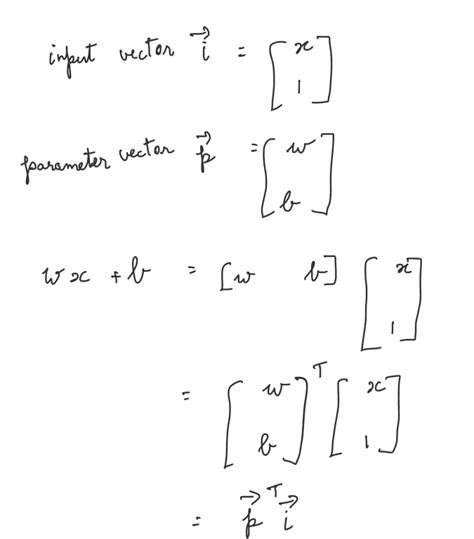 input vector \vec{i} = \begin{bmatrix} x \\ 1 \end{bmatrix}
parameter vector \vec{p} = \begin{bmatrix} w \\ b \end{bmatrix}
wx + b = [w b] \begin{bmatrix} x \\ 1 \end{bmatrix}
= \begin{bmatrix} w \\ b \end{bmatrix}^T \begin{bmatrix} x \\ 1 \end{bmatrix}
= \vec{p}^T \vec{i}